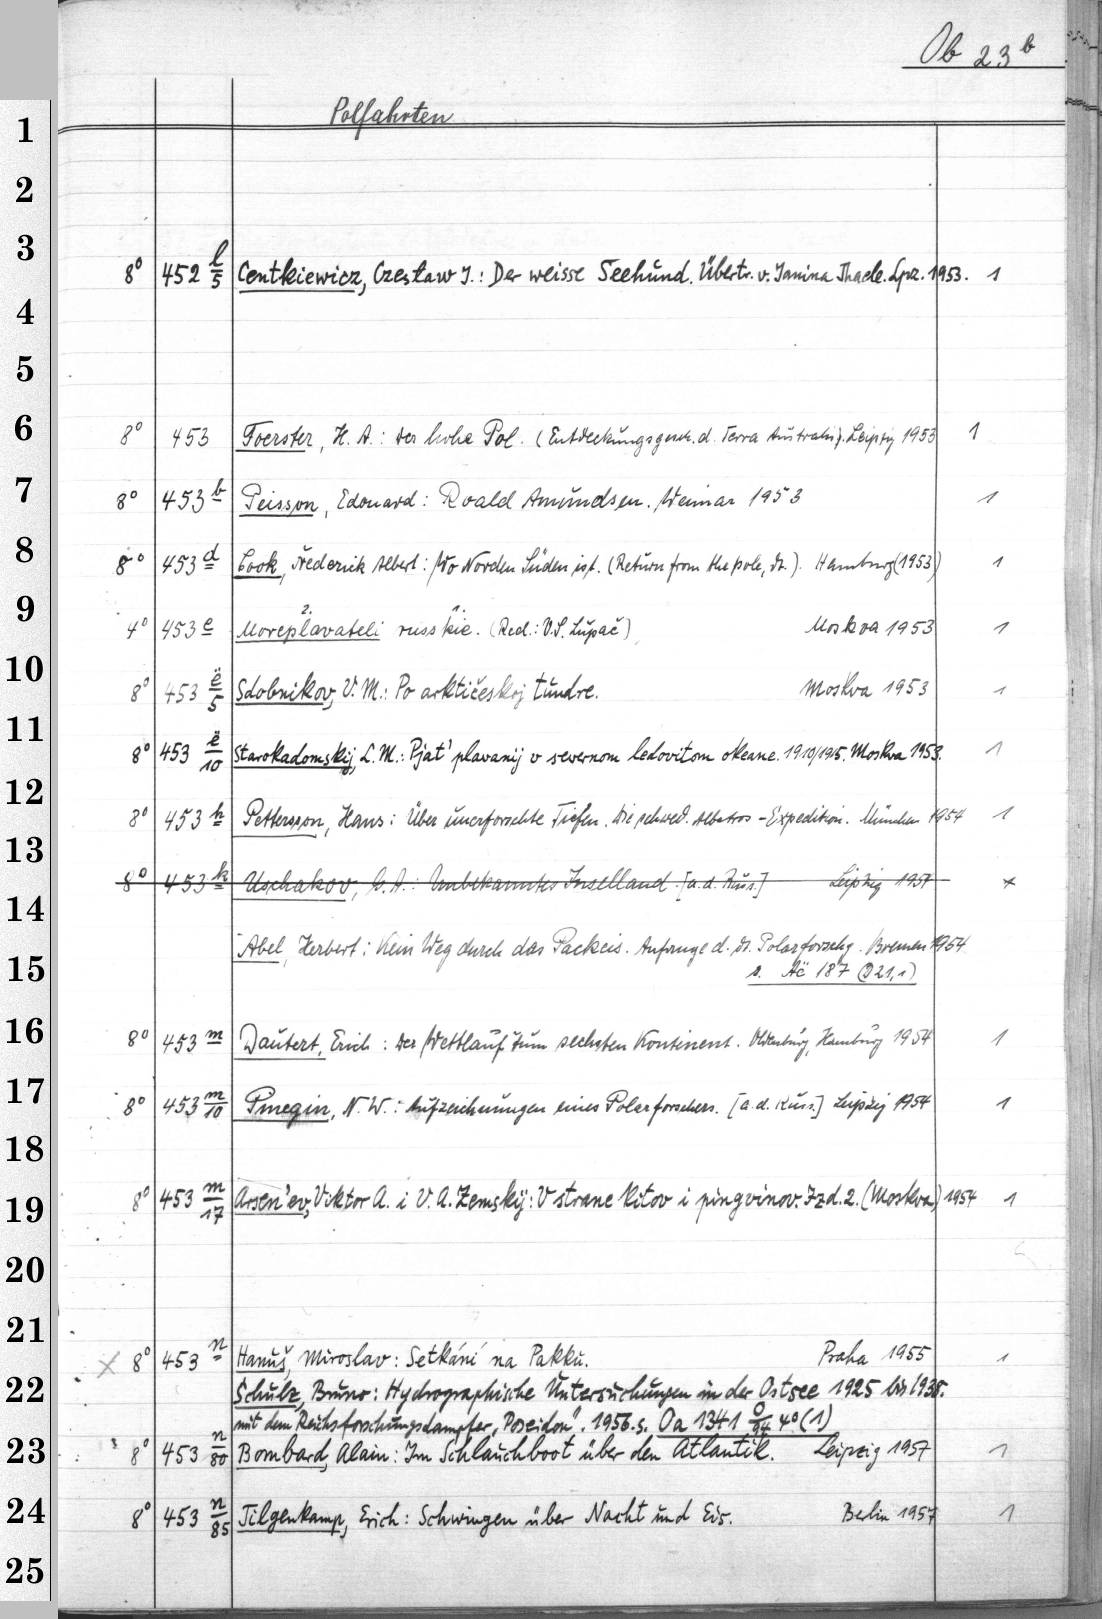 Ob 23 b
Polfahrten
1
2
3
8° 452 l/5 Centkiewicz, Czesław J.: Der weisse Seehund. Übertr. v. Janina Thade. Lpz. 1953. 1
4
5
6 8° 453 Foerster, H. A.: Der hohe Pol. (Entdeckungsgesch. d. Terra Australis). Leipzig 1953 1
7 8° 453 b Peisson, Edouard: Roald Amundsen. Weimar 1953 1
8 8° 453 d Cook, Frederick Albert: Wo Norden Süden ist. (Return from the pole, dt.). Hamburg (1953) 1
9 4° 453 e Moreplavateli 2. russkie 1. (Red.: V.S. Lupač) Moskva 1953 1
10 8° 453 ë/5 Sdobnikov, V. M.: Po arktičeskoj tundre. Moskva 1953 1
11 8° 453 ë/10 Starokadomskij, L. M.: Pjat' plavanij v severnom ledovitom okeane. 1910/1915. Moskva 1953. 1
12 8° 453 h Pettersson, Hans: Über unerforschte Tiefen. Die schwed. Albatros-Expedition. München 1954 1
13
8° 453 k Uschakov, G. A.: Unbekanntes Inselland [a. d. Russ.] Leipzig
14
Abel, Herbert: Kein Weg durch das Packeis. Anfänge d. dt. Polarforschg. Bremen 1954
15 s. Ač 187 (D 21, 1)
16 8° 453 m Dautert, Erich: Der Wettlauf zum sechsten Kontinent. Oldenburg, Hamburg 1954 1
17 8° 453 m/10 Pinegin, N. W.: Aufzeichnungen eines Polarforschers. [a. d. Russ.] Leipzig 1954 1
18
19 8° 453 m/17 Arsen'ev, Viktor A. i V. A. Zemskij: V strane kitov i pingvinov. Izd. 2. (Moskva) 1954 1
20
21
8° 453 n Hanuš, Miroslav: Setkání na Pakku. Praha 1955 1
22 Schulz, Bruno: Hydrographische Untersuchungen in der Ostsee 1925 bis 1938.
mit dem „Reichsforschungsdampfer „Poseidon". 1956. s. Oa 1341 o/94 4° (1)
23 8° 453 n/80 Bombard, Alain: Im Schlauchboot über den Atlantik. Leipzig 1957 1
24 8° 453 n/85 Tilgenkamp, Erich: Schwingen über Nacht und Eis. Berlin 1957 1
25